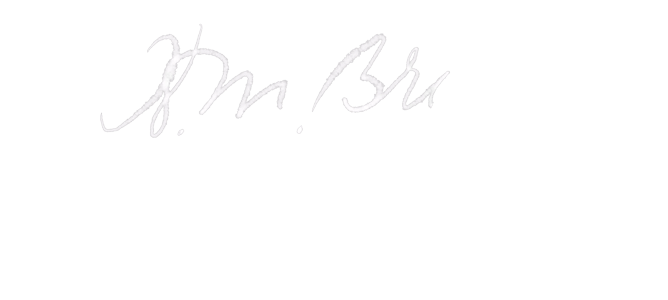 J. M. Bru